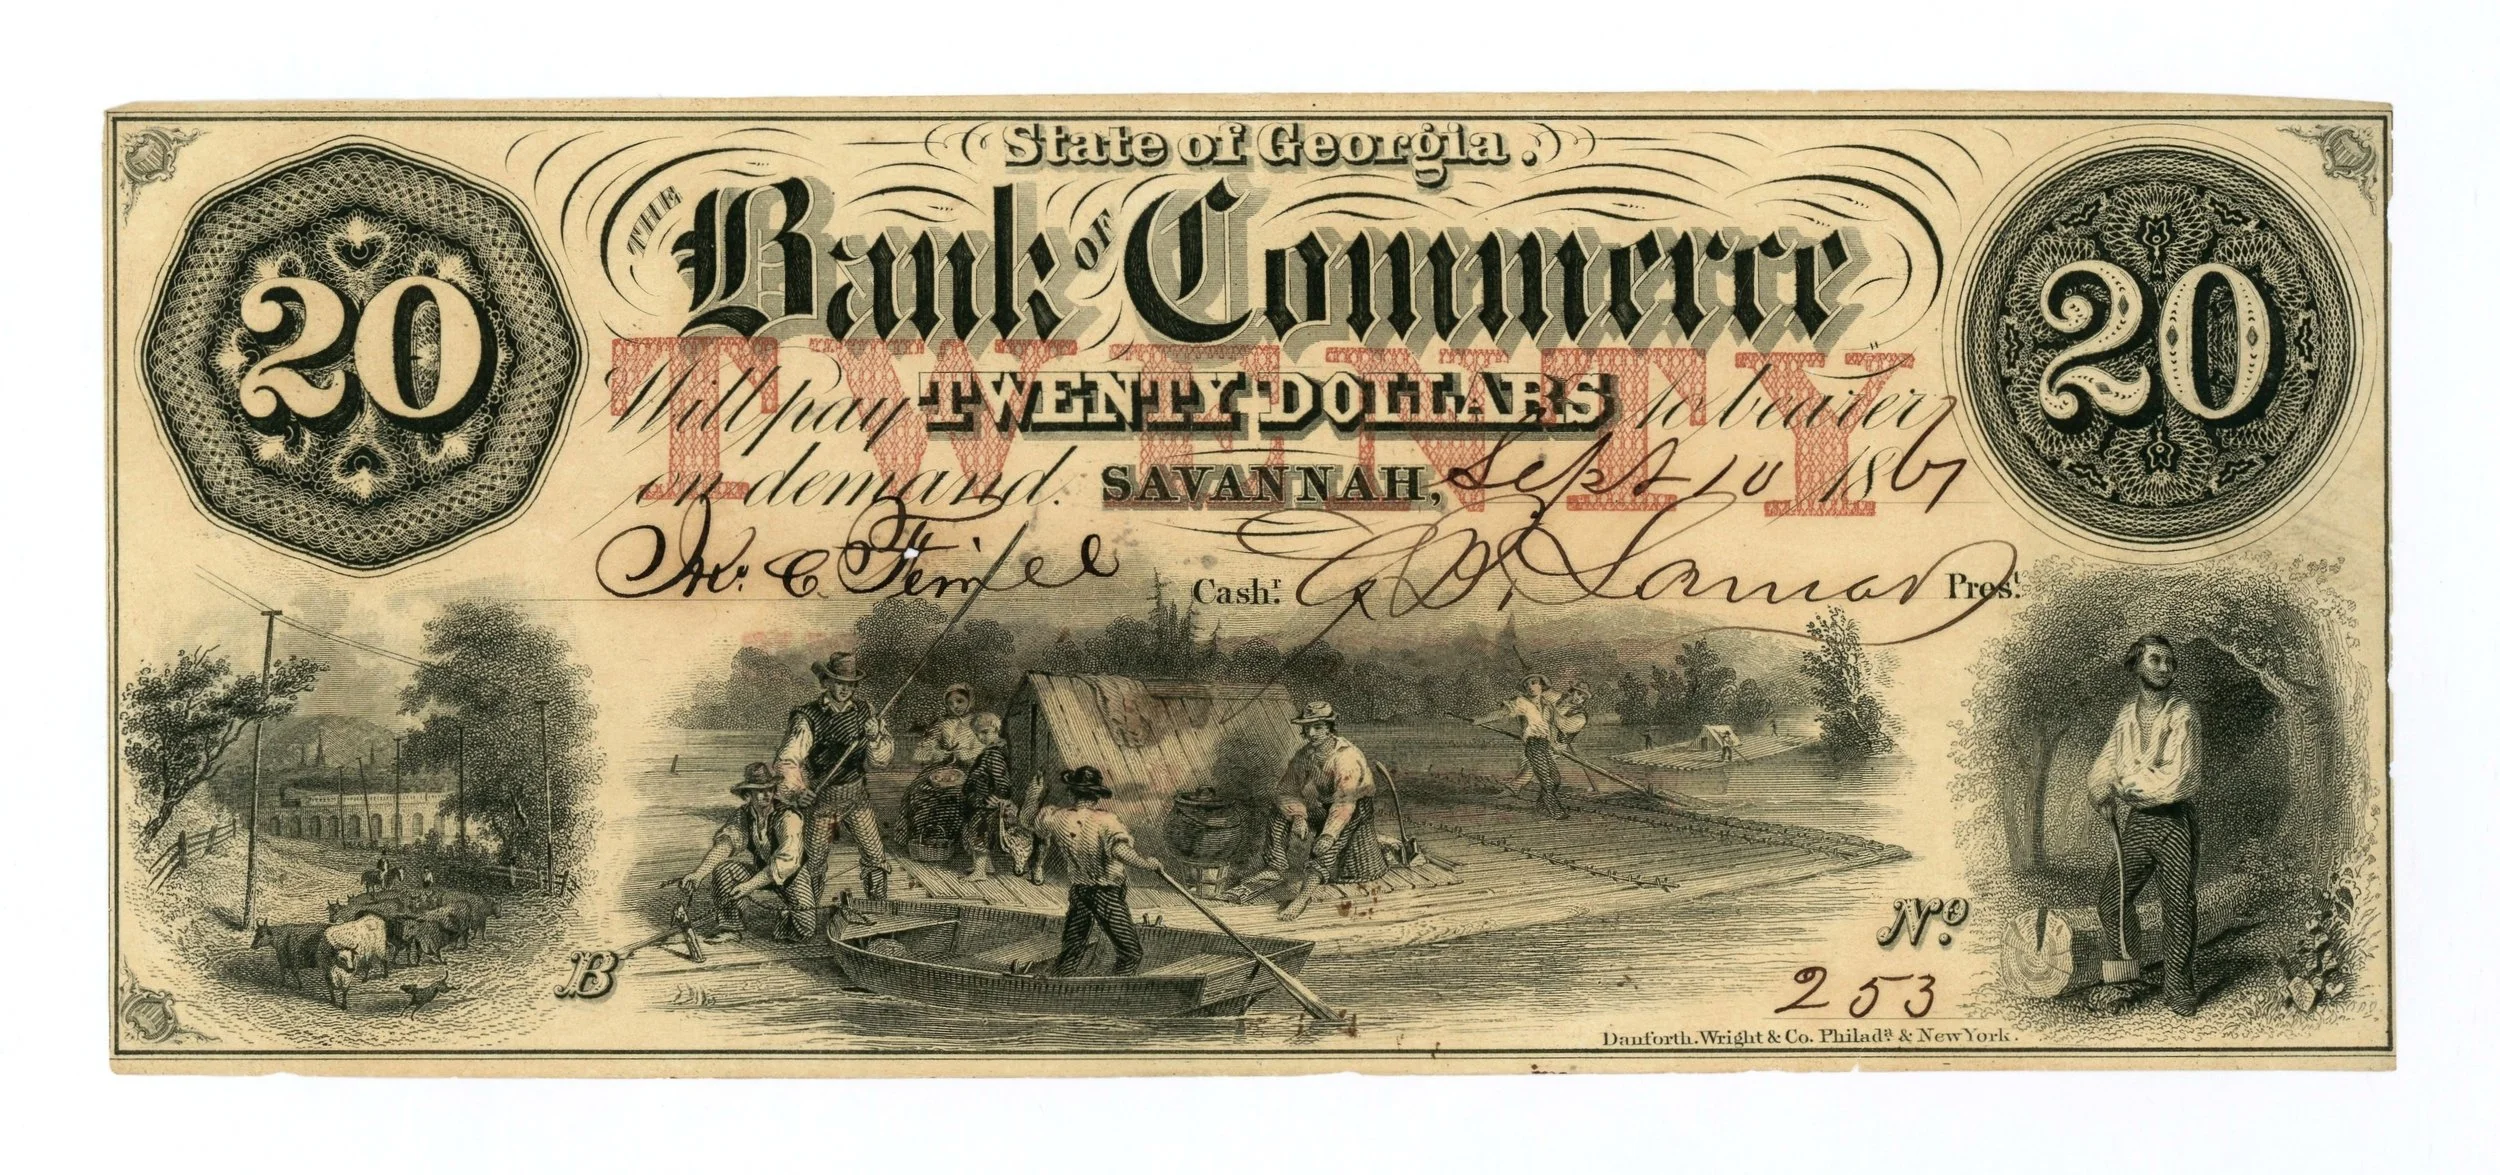 State of Georgia.
THE Bank OF Commerce
TWENTY
Will pay TWENTY DOLLARS to bearer
on demand. SAVANNAH, Sept 10 1861
Cash.r G B. Lamar Pres.t
20
20
B
No.
253
Danforth. Wright & Co. Philad.a & New York.